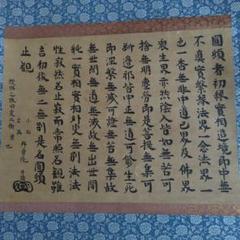 圓頓者初縁實相造境即中無
不真實繋縁法界一念法界一
色一香無非中道己界及佛界
衆生界亦然陰入皆如無苦可
捨無明塵勞即是菩提無集可
斷邊邪皆中正無道可修生死
即涅槃無滅可證無苦無集故
無世間無道無滅故無出世間
純一實相實相外更無別法法
性寂然名止寂而常照名觀雖
言初後無二無別是名圓頓
止觀